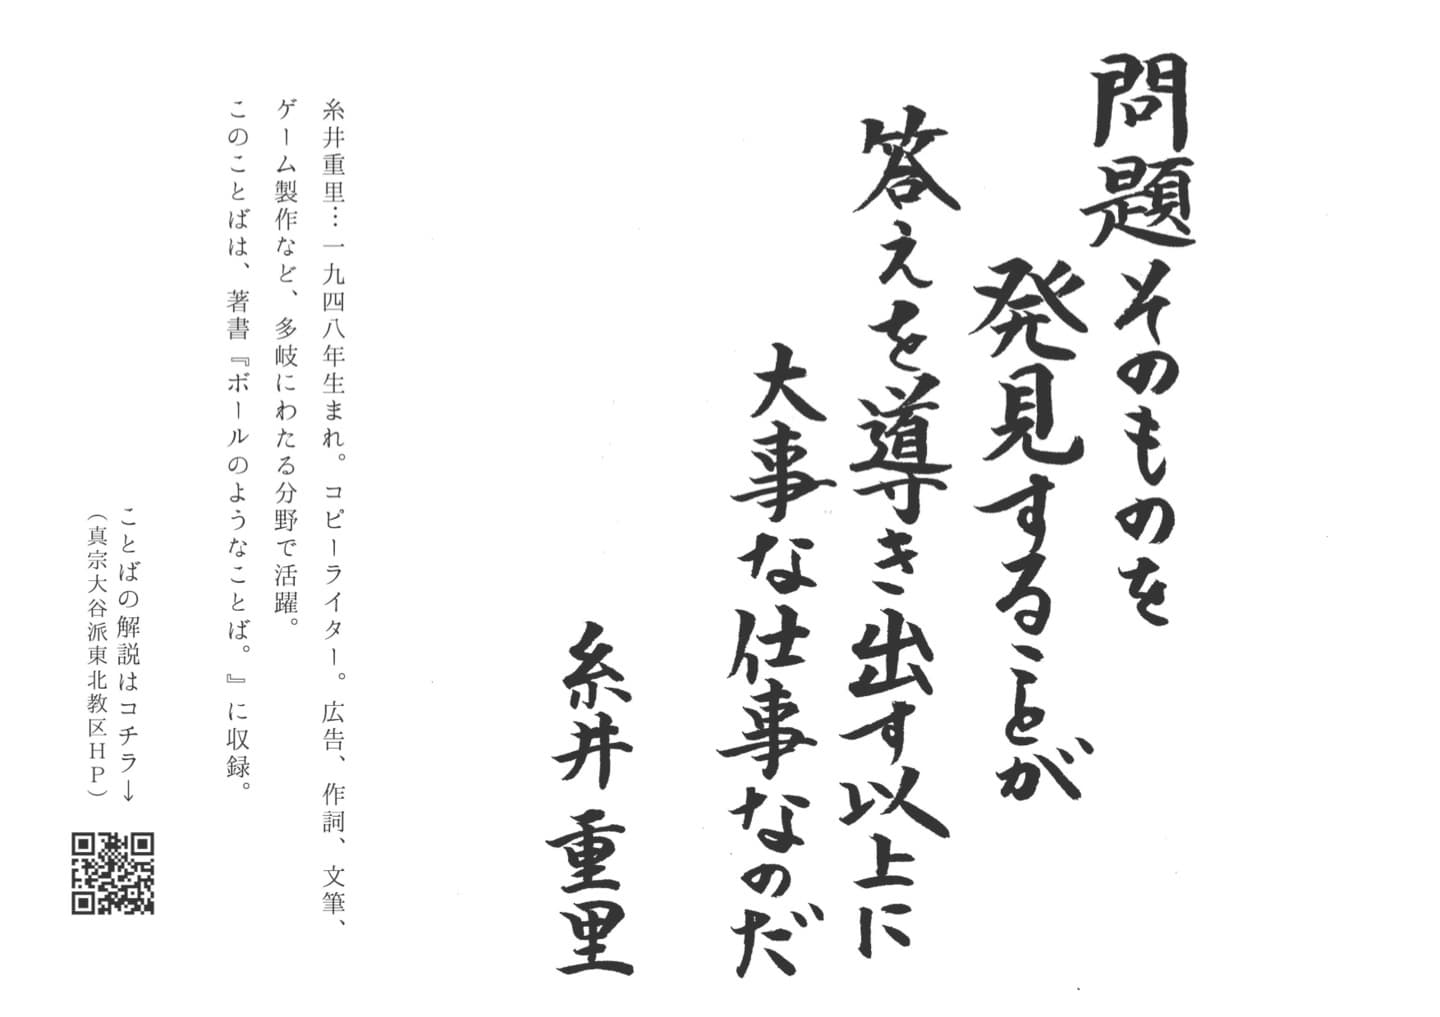 問題そのものを
発見することが
答えを導き出す以上に
大事な仕事なのだ
糸井重里
糸井重里…一九四八年生まれ。コピーライター。広告、作詞、文筆、
ゲーム製作など、多岐にわたる分野で活躍。
このことばは、著書『ボールのようなことば。』に収録。
ことばの解説はコチラ→
（真宗大谷派東北教区ＨＰ）